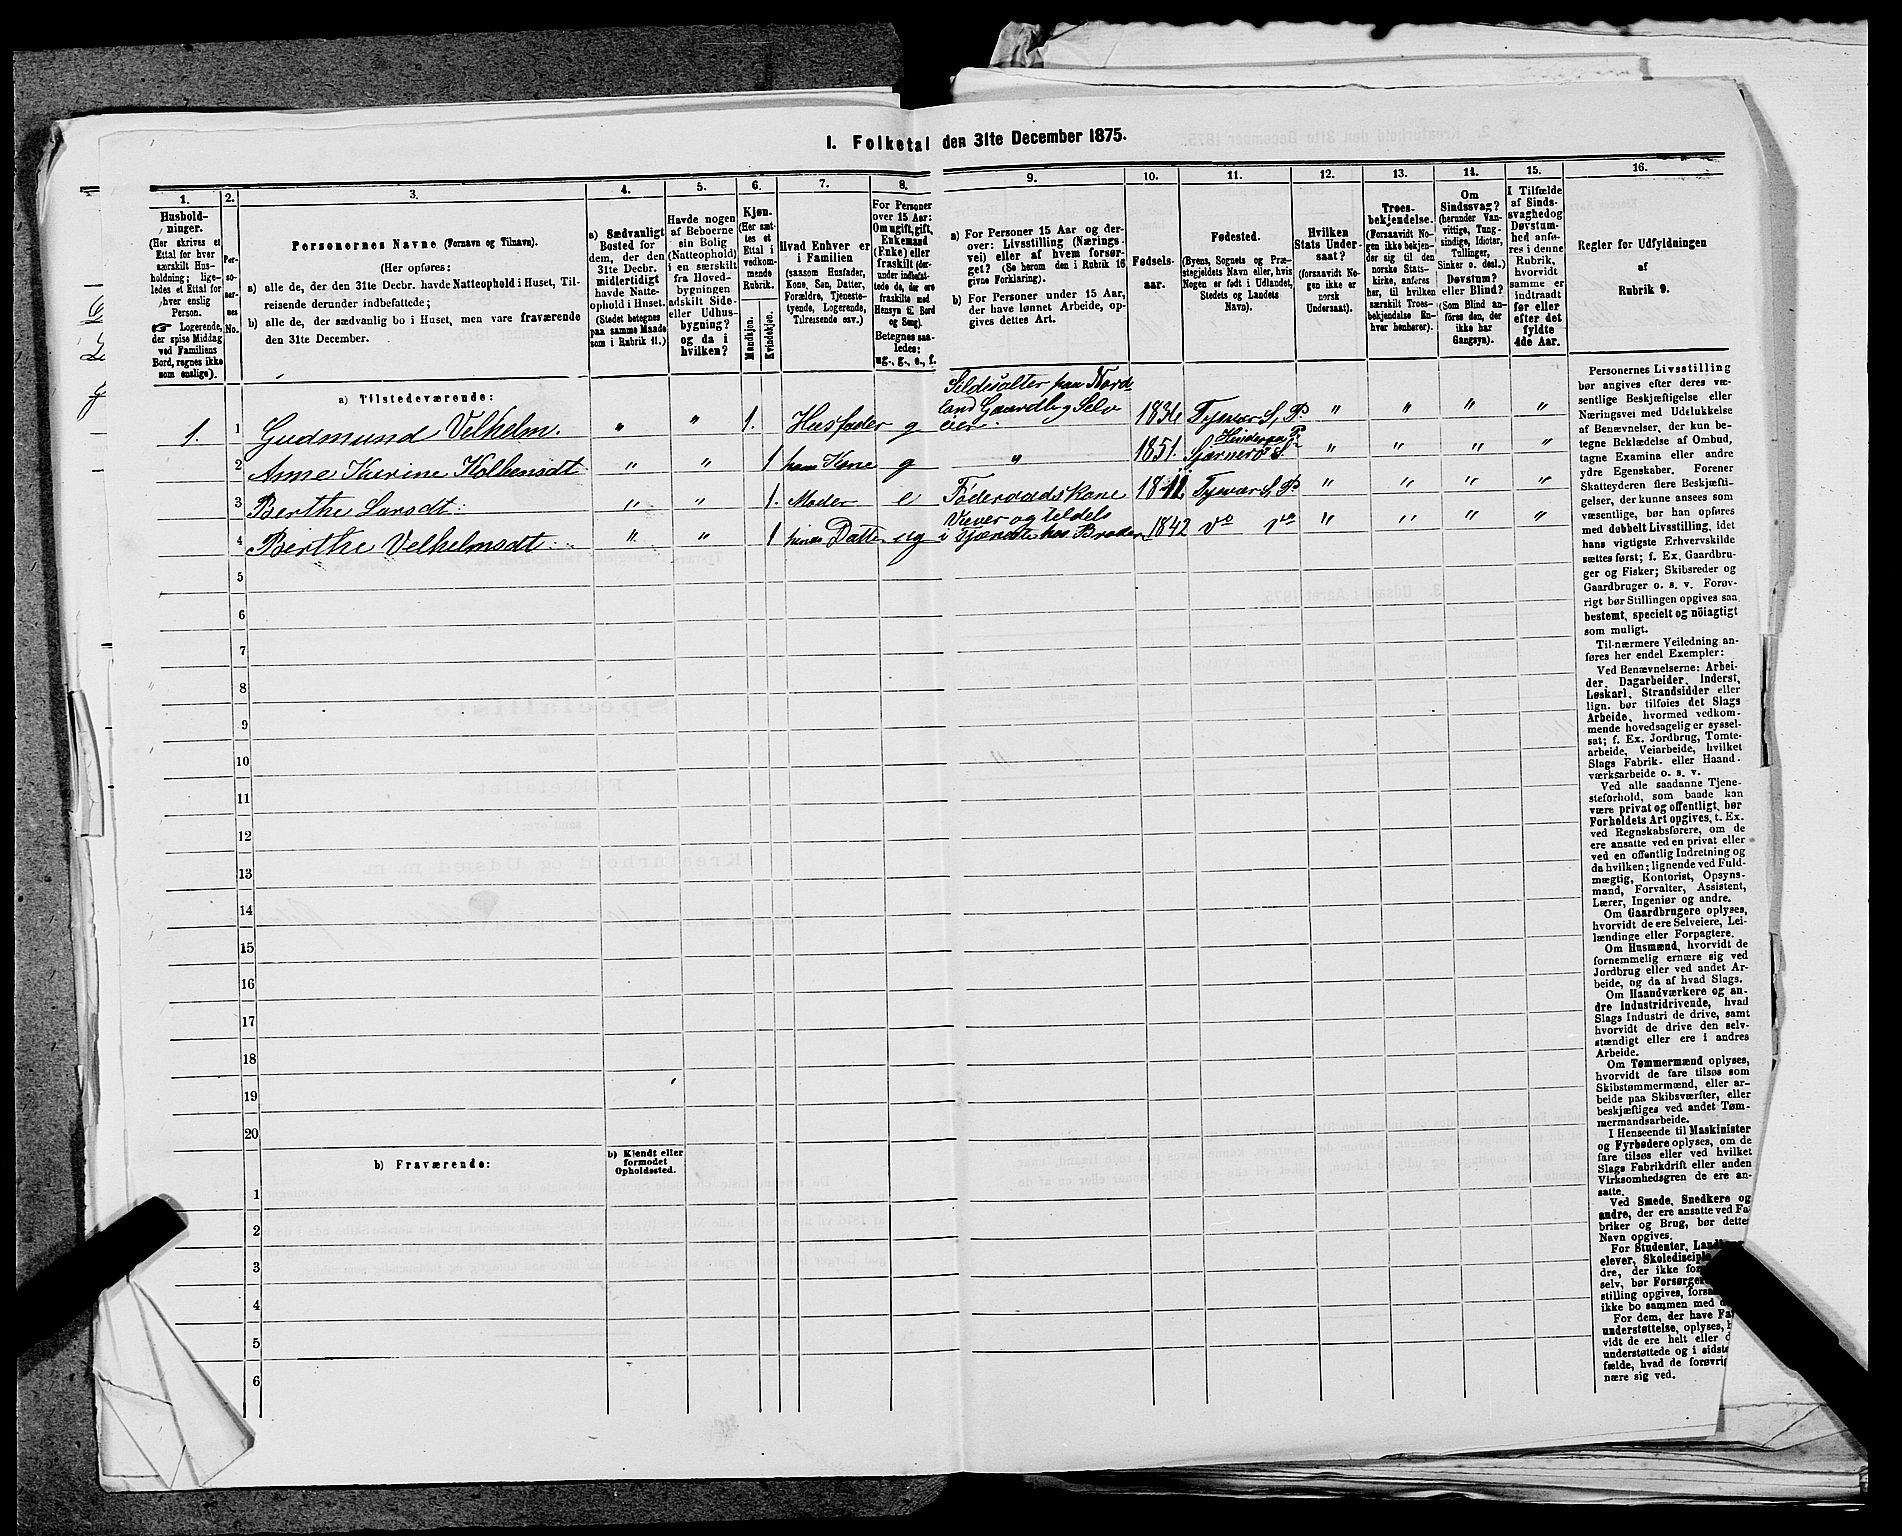 I. Folketal den 31te December 1875.
1.
Hushold-
ninger.
(Her skrives et
Ettal for hver
særskilt Hus-
holdning; lige-
ledes et Ettal for
hver enslig
Person.
☞ Logerende,
der spise Middag
ved Familiens
Bord, regnes ikke
som enslige).
2.
Per-
so-
ner-
nes
No.
3.
Personernes Navne (Fornavn og Tilnavn).
(Her opføres:
a) alle de, der den 31te Decbr. havde Natteophold i Huset, Til-
reisende derunder indbefattede;
b) alle de, der sædvanlig bo i Huset, men vare fraværende
den 31te December.
4.
a) Sædvanligt
Bosted for
dem, der den
31te Decbr.
midlertidigt
havde Natte-
ophold i Huset.
(Stedet betegnes
paa samme Maade
som i Rubrik 11.)
5.
Havde nogen
af Beboerne
sin Bolig
(Natteophold)
i en særskilt
fra Hoved-
bygningen
adskilt Side-
eller Udhus-
bygning? og da i
hvilken?
6.
Kjøn.
(Her sæt-
tes et
Ettal i
vedkom-
mende
Rubrik.
Mandkjøn.
Kvindekjøn.
7.
Hvad Enhver er
i Familien
(saasom Husfader,
Kone, Søn, Datter,
Forældre, Tjeneste-
tyende, Logerende,
Tilreisende osv.).
8.
For Personer
over 15 Aar:
Om ugift, gift,
Enkemand
(Enke) eller
fraskilt (der-
under indbefat-
tede de, der ere
fraskilte med
Hensyn til Bord
og Seng).
Betegnes saa-
ledes:
ug., g., e., f.
9.
a) For Personer 15 Aar og der-
over: Livsstilling (Nærings-
vei) eller af hvem forsør-
get? (Se herom den i Rubrik 16
givne Forklaring).
b) For Personer under 15 Aar,
der have lønnet Arbeide, op-
gives dettes Art.
10.
Fødsels-
aar.
11.
Fødested.
(Byens, Sognets og Præ-
stegjeldets Navn eller, hvis
Nogen er født i Udlandet,
Stedets og Landets
Navn).
12.
Hvilken
Stats Under-
saat?
(forsaavidt No-
gen ikke er
norsk
Undersaat).
13.
Troes-
bekjendelse.
(Forsaavidt No-
gen ikke bekjen-
der sig til den
norske Stats-
kirke, anføres
her, til hvilken
særskilt Troes-
bekjendelse En-
hver henhører).
14.
Om
Sindssvag?
(herunder Van-
vittige, Tung-
sindige, Idioter,
Tullinger,
Sinker o. desl.)
Døvstum?
eller Blind?
(Som Blind an-
føres den, der
ikke har
Gangsyn).
15.
I Tilfælde
af Sinds-
svaghed og
Døvstum-
hed anfø-
res i denne
Rubrik,
hvorvidt
samme er
indtraadt
før eller
efter det
fyldte
4de Aar.
16.
Regler for Udfyldningen
af
Rubrik 9.
a) Tilstedeværende:
1. 1 Gudmund Velhelm. " " 1. Husfader g Sildesalter paa Nord-
land Gaardb og Selv
eier. 1834 Tysvær S, P. " " " "
2 Anne Karine Kolbensdt " " 1 hans Kone g " 1851 Hinderaa P.
Sjærnerø S " " " "
3 Berthe Larsdt: " " 1. Moder e Föderaadskone 1811 Tysvær S, P. " " " "
4 Berthe Velhelmsdt. " " 1 hendes Datter ug Væver og tildels
i Tjæneste hos Broder. 1842 Do Do " " " "
5
6
7
8
9
10
11
12
13
14
15
16
17
18
19
20
b) Fraværende:
b) Kjendt eller
formodet
Opholdssted.
1
2
3
4
5
6
Personernes Livsstilling
bør angives efter deres væ-
sentlige Beskjæftigelse eller
Næringsvei med Udelukkelse
af Benævnelser, der kun be-
tegne Beklædelse af Ombud,
tagne Examina eller andre
ydre Egenskaber. Forener
Skatteyderen flere Beskjæfti-
gelser, der kunne ansees som
væsentlige, bør han opføres
med dobbelt Livsstilling, idet
hans vigtigste Erhvervskilde
sættes først; f. Ex. Gaardbru-
ger og Fisker; Skibsreder og
Gaardbruger o. s. v. Forøv-
rigt bør Stillingen opgives saa
bestemt, specielt og nöiagtigt
som muligt.
Til nærmere Veiledning an-
føres her endel Exempler:
Ved Benævnelserne: Arbei-
der, Dagarbeider, Inderst,
Løskarl, Strandsidder eller
lign. bør tilføies det Slags
Arbeide, hvormed vedkom-
mende hovedsagelig er syssel-
sat; f. Ex. Jordbrug, Tomte-
arbeide, Veiarbeide, hvilket
Slags Fabrik- eller Haand-
værksarbeide o. s. v.
Ved alle saadanne Tjene-
steforhold, som baade kan
være privat og offentligt, bør
Forholdets Art opgives, t. Ex.
ved Regnskabsførere, om de
ere ansatte ved en privat eller
ved en offentlig Indretning og
da hvilken; lignende ved Fuld-
mægtig, Kontorist, Opsyns-
mand, Forvalter, Assistent,
Lærer, Ingeniør og andre.
Om Gaardbrugere oplyses,
hvorvidt de ere Selveiere, Lei-
lændinge eller Forpagtere.
Om Husmænd, hvorvidt de
fornemmelig ernære sig ved
Jordbrug eller ved andet Ar-
beide, og da af hvad Slags.
Om Haandværkere og an-
dre Industridrivende, hvad
Slags Industri de drive, samt
hvorvidt de drive den selv-
stændigt eller ere i andres
Arbeide.
Om Tømmermænd oplyses,
hvorvidt de fare tilsøs som
Skibstømmermænd, eller ar-
beide paa Skibsværfter, eller
beskjæftiges ved andet Tøm-
mermandsarbeide.
I Henseende til Maskinister
og Fyrbødere oplyses, om de
fare tilsøs eller ved hvilket
Slags Fabrikdrift eller anden
Virksomhedsgren de ere an-
satte.
Ved Smede, Snedkere og
andre, der ere ansatte ved Fa-
briker og Brug, bør dettes
Navn opgives.
For Studenter,
elever,
dre, der ikke
selv, bør
stilling opgives,
ikke bo sammen med
For dem, der have
understøttelse, oplyses,
vidt de ere helt eller
understøttede og i
fælde, hvad de
nære sig ved.